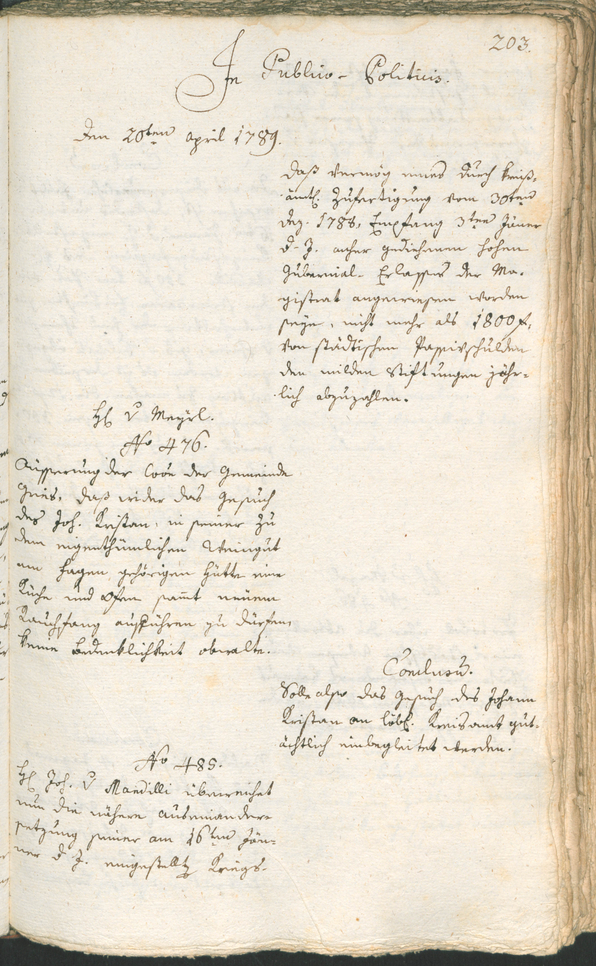 203.
In Publico-Politicis.
den 20ten April 1789.
daß vermög eines durch kreis-
ämtl. Zufertigung vom 30ten
Dez. 1788, Empfang 3ten Jäner
d. J. anher gediehenen hohen
Gubernial-Erlasses der Ma-
gistrat angewiesen worden
seye, nicht mehr als 1800 f.
von städtischen Passivschulden
den milden Stiftungen jähr-
lich abzuzahlen.
H. v Meyrl.
No 476.
Äusserung der Coõn der Gemeinde
Gries, daß wider das Gesuch
des Joh. Kristan, in seiner zu
dem eigenthümlichen Weingut
am Hagen gehörigen Hütte eine
Küche und Ofen sam̅t neuem
Rauchfang aufführen zu dürfen,
keine Bedenklichkeit obwalte.
Conclusum.
Solle also das Gesuch des Johann
Kristan an löbl. Kreisamt gut-
ächtlich einbegleitet werden.
No 485.
H. Joh. v Mandilli überreichet
nun die nähere Auseinander-
setzung seiner am 16ten Jän-
ner d. J. eingestellten Kriegs-